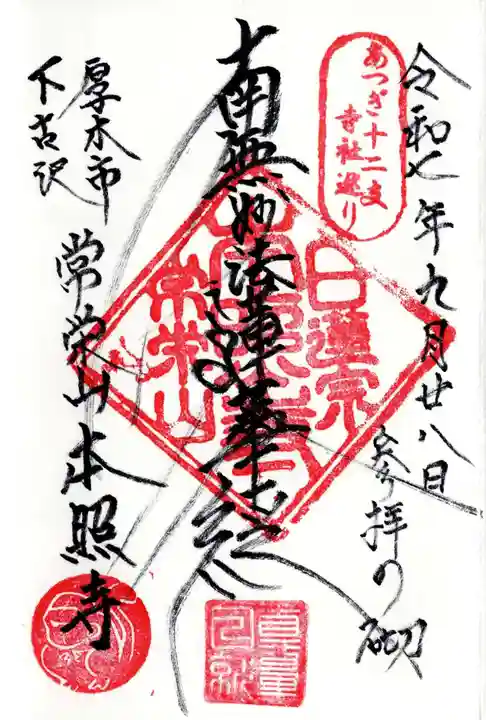 令和七年九月廿八日
参拝の砌
あつぎ十二支
寺社巡り
南無妙法蓮華経
日蓮宗
常栄山
厚木市
下古沢
常栄山本照寺